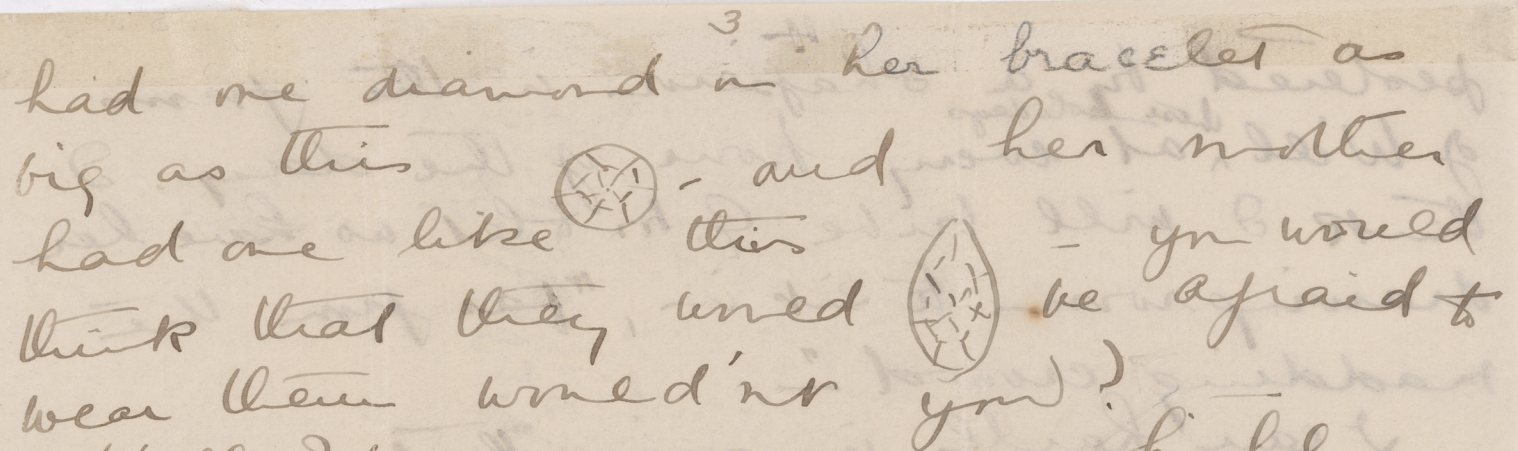 3
had one diamond in her bracelet as
big as this - and her mother
had one like this - you would
think that they would be afraid to
wear them would'nt you?